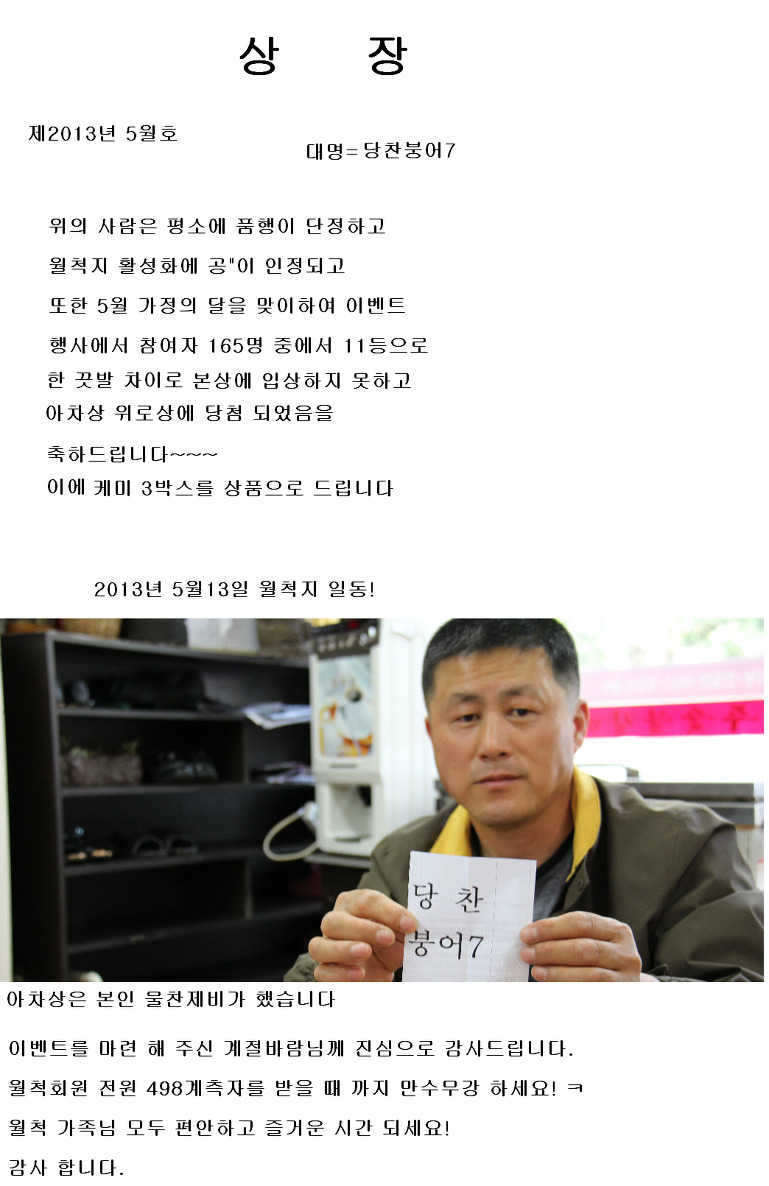 상 장
제2013년 5월호
대명=당찬붕어7
위의 사람은 평소에 품행이 단정하고
월척지 활성화에 공"이 인정되고
또한 5월 가정의 달을 맞이하여 이벤트
행사에서 참여자 165명 중에서 11등으로
한 끗발 차이로 본상에 입상하지 못하고
아차상 위로상에 당첨 되었음을
축하드립니다~~~
이에 케미 3박스를 상품으로 드립니다
2013년 5월13일 월척지 일동!
당 찬
붕어7
아차상은 본인 물찬제비가 했습니다
이벤트를 마련 해 주신 계절바람님께 진심으로 감사드립니다.
월척회원 전원 498계측자를 받을 때 까지 만수무강 하세요! ㅋ
월척 가족님 모두 편안하고 즐거운 시간 되세요!
감사 합니다.